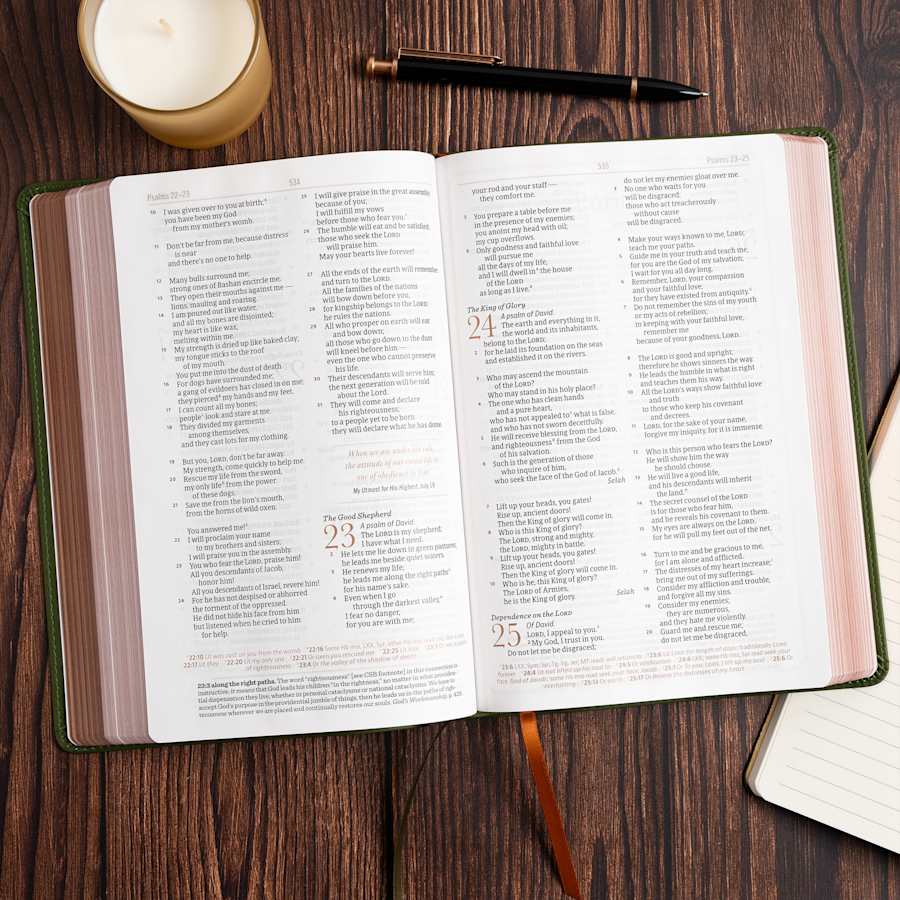 Psalms 22–23
534
10 I was given over to you at birth;
you have been my God
from my mother's womb.
11 Don't be far from me, because distress
is near
and there's no one to help.
12 Many bulls surround me;
strong ones of Bashan encircle me.
13 They open their mouths against me—
lions, mauling and roaring.
14 I am poured out like water,
and all my bones are disjointed;
my heart is like wax,
melting within me.
15 My strength is dried up like baked clay;
my tongue sticks to the roof
of my mouth.
You put me into the dust of death.
16 For dogs have surrounded me;
a gang of evildoers has closed in on me;
they pierced my hands and my feet.
17 I can count all my bones;
people look and stare at me.
18 They divided my garments
among themselves,
and they cast lots for my clothing.
19 But you, LORD, don't be far away.
My strength, come quickly to help me.
20 Rescue my life from the sword,
my only life from the power
of these dogs.
21 Save me from the lion's mouth,
from the horns of wild oxen.
You answered me!
22 I will proclaim your name
to my brothers and sisters;
I will praise you in the assembly.
23 You who fear the LORD, praise him!
All you descendants of Jacob,
honor him!
All you descendants of Israel, revere him!
24 For he has not despised or abhorred
the torment of the oppressed.
He did not hide his face from him
but listened when he cried to him
for help.
25 I will give praise in the great assembly
because of you;
I will fulfill my vows
before those who fear you.
26 The humble will eat and be satisfied;
those who seek the LORD
will praise him.
May your hearts live forever!
27 All the ends of the earth will remember
and turn to the LORD.
All the families of the nations
will bow down before you,
28 for kingship belongs to the LORD;
he rules the nations.
29 All who prosper on earth will eat
and bow down;
all those who go down to the dust
will kneel before him—
even the one who cannot preserve
his life.
30 Their descendants will serve him;
the next generation will be told
about the Lord.
31 They will come and declare
his righteousness;
to a people yet to be born
they will declare what he has done.
My Utmost for His Highest, July 19
The Good Shepherd
23 A psalm of David.
The LORD is my shepherd;
I have what I need.
2 He lets me lie down in green pastures;
he leads me beside quiet waters.
3 He renews my life;
he leads me along the right paths
for his name's sake.
4 Even when I go
through the darkest valley,
I fear no danger,
for you are with me;
23:3 along the right paths. The word "righteousness" [see CSB footnote] in this connection is
instructive. It means that God leads his children "in the rightness," no matter in what providen-
tial dispensation they live, whether in personal cataclysms or national cataclysms. We have to
accept God's purpose in the providential jumble of things, then he leads us in the paths of righ-
teousness wherever we are placed and continually restores our souls. God's Workmanship
535
Psalms 23–25
your rod and your staff—
they comfort me.
5 You prepare a table before me
in the presence of my enemies;
you anoint my head with oil;
my cup overflows.
6 Only goodness and faithful love
will pursue me
all the days of my life,
and I will dwell in the house
of the LORD
as long as I live.
The King of Glory
24 A psalm of David.
The earth and everything in it,
the world and its inhabitants,
belong to the LORD;
2 for he laid its foundation on the seas
and established it on the rivers.
3 Who may ascend the mountain
of the LORD?
Who may stand in his holy place?
4 The one who has clean hands
and a pure heart,
who has not appealed to what is false,
and who has not sworn deceitfully.
5 He will receive blessing from the LORD,
and righteousness from the God
of his salvation.
6 Such is the generation of those
who inquire of him,
who seek the face of the God of Jacob.
Selah
7 Lift up your heads, you gates!
Rise up, ancient doors!
Then the King of glory will come in.
8 Who is this King of glory?
The LORD, strong and mighty,
the LORD, mighty in battle.
9 Lift up your heads, you gates!
Rise up, ancient doors!
Then the King of glory will come in.
10 Who is he, this King of glory?
The LORD of Armies,
he is the King of glory.
Selah
Dependence on the LORD
25 Of David.
LORD, I appeal to you.
2 My God, I trust in you.
Do not let me be disgraced;
do not let my enemies gloat over me.
3 No one who waits for you
will be disgraced;
those who act treacherously
without cause
will be disgraced.
4 Make your ways known to me, LORD;
teach me your paths.
5 Guide me in your truth and teach me,
for you are the God of my salvation;
I wait for you all day long.
6 Remember, LORD, your compassion
and your faithful love,
for they have existed from antiquity.
7 Do not remember the sins of my youth
or my acts of rebellion;
in keeping with your faithful love,
remember me
because of your goodness, LORD.
8 The LORD is good and upright;
therefore he shows sinners the way.
9 He leads the humble in what is right
and teaches them his way.
10 All the LORD's ways show faithful love
and truth
to those who keep his covenant
and decrees.
11 LORD, for the sake of your name,
forgive my iniquity, for it is immense.
12 Who is this person who fears the LORD?
He will show him the way
he should choose.
13 He will live a good life,
and his descendants will inherit
the land.
14 The secret counsel of the LORD
is for those who fear him,
and he reveals his covenant to them.
15 My eyes are always on the LORD,
for he will pull my feet out of the net.
16 Turn to me and be gracious to me,
for I am alone and afflicted.
17 The distresses of my heart increase;
bring me out of my sufferings.
18 Consider my affliction and trouble,
and forgive all my sins.
19 Consider my enemies;
they are numerous,
and they hate me violently.
20 Guard me and rescue me;
do not let me be disgraced,